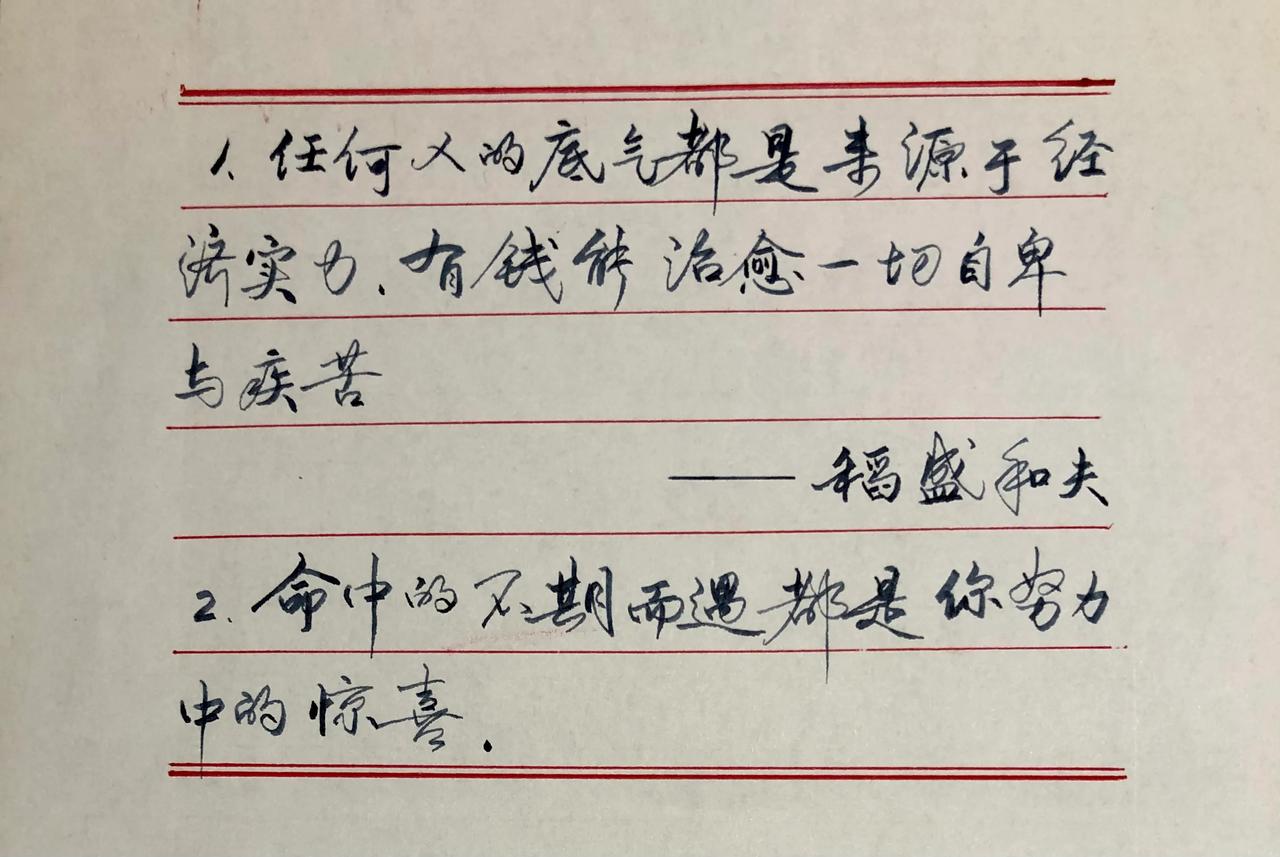 1、任何人的底气都是来源于经
济实力.有钱能治愈一切自卑
与疾苦
——稻盛和夫
2.命中的不期而遇都是你努力
中的惊喜.